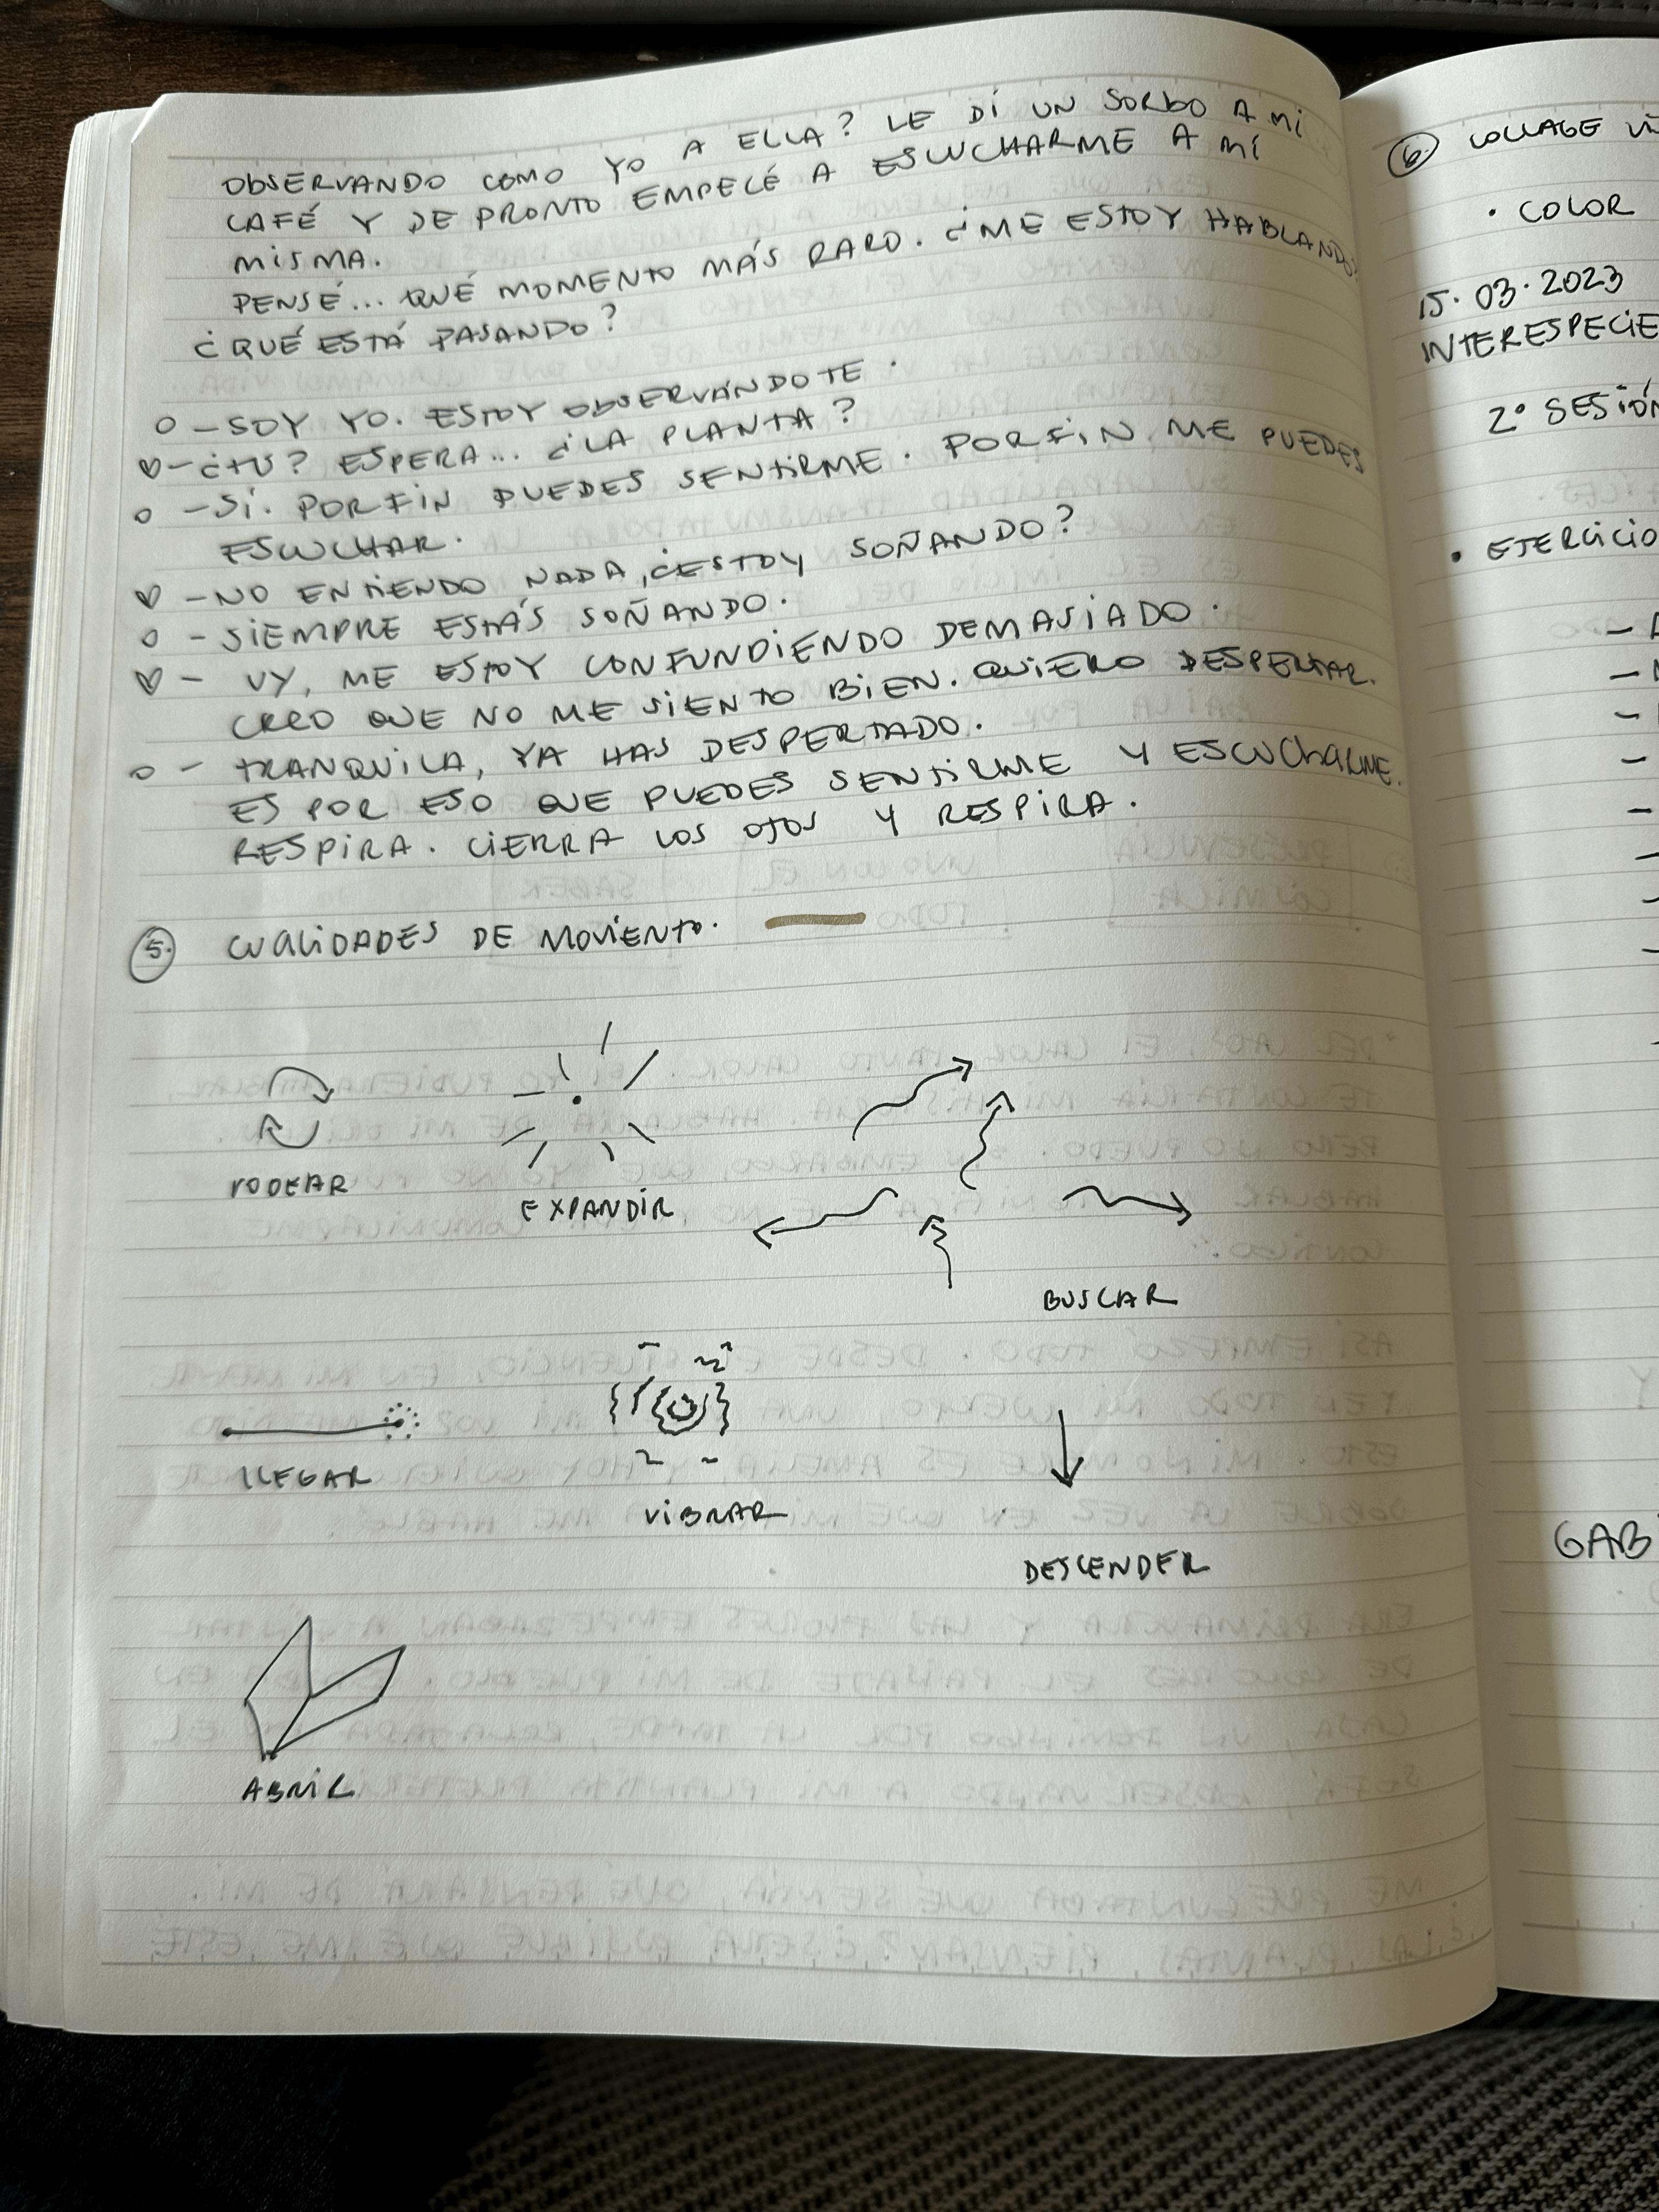 OBSERVANDO COMO YO A ELLA? LE DÍ UN SORBO A MI
CAFÉ Y DE PRONTO EMPECÉ A ESCUCHARME A MÍ
MISMA.
PENSÉ... QUÉ MOMENTO MÁS RARO. ¿ME ESTOY HABLANDO?
¿QUÉ ESTÁ PASANDO?
O - SOY YO. ESTOY OBSERVÁNDOTE.
♡ - ¿TU? ESPERA... ¿LA PLANTA?
O - SÍ. POR FIN PUEDES SENTIRME. POR FIN ME PUEDES
ESCUCHAR.
♡ - NO ENTIENDO NADA, ¿ESTOY SOÑANDO?
O - SIEMPRE ESTÁS SOÑANDO.
♡ - UY, ME ESTOY CONFUNDIENDO DEMASIADO.
CREO QUE NO ME SIENTO BIEN. QUIERO DESPERTAR.
O - TRANQUILA, YA HAS DESPERTADO.
ES POR ESO QUE PUEDES SENTIRME Y ESCUCHARME.
RESPIRA. CIERRA LOS OJOS Y RESPIRA.
5. CUALIDADES DE MOVIENTO.
RODEAR
EXPANDIR
BUSCAR
LLEGAR
VIBRAR
DESCENDER
ABRIR
6. COLLAGE
• COLOR
15.03.2023
INTERESPECIE
2º SESIÓN
• EJERCICIO
GAB